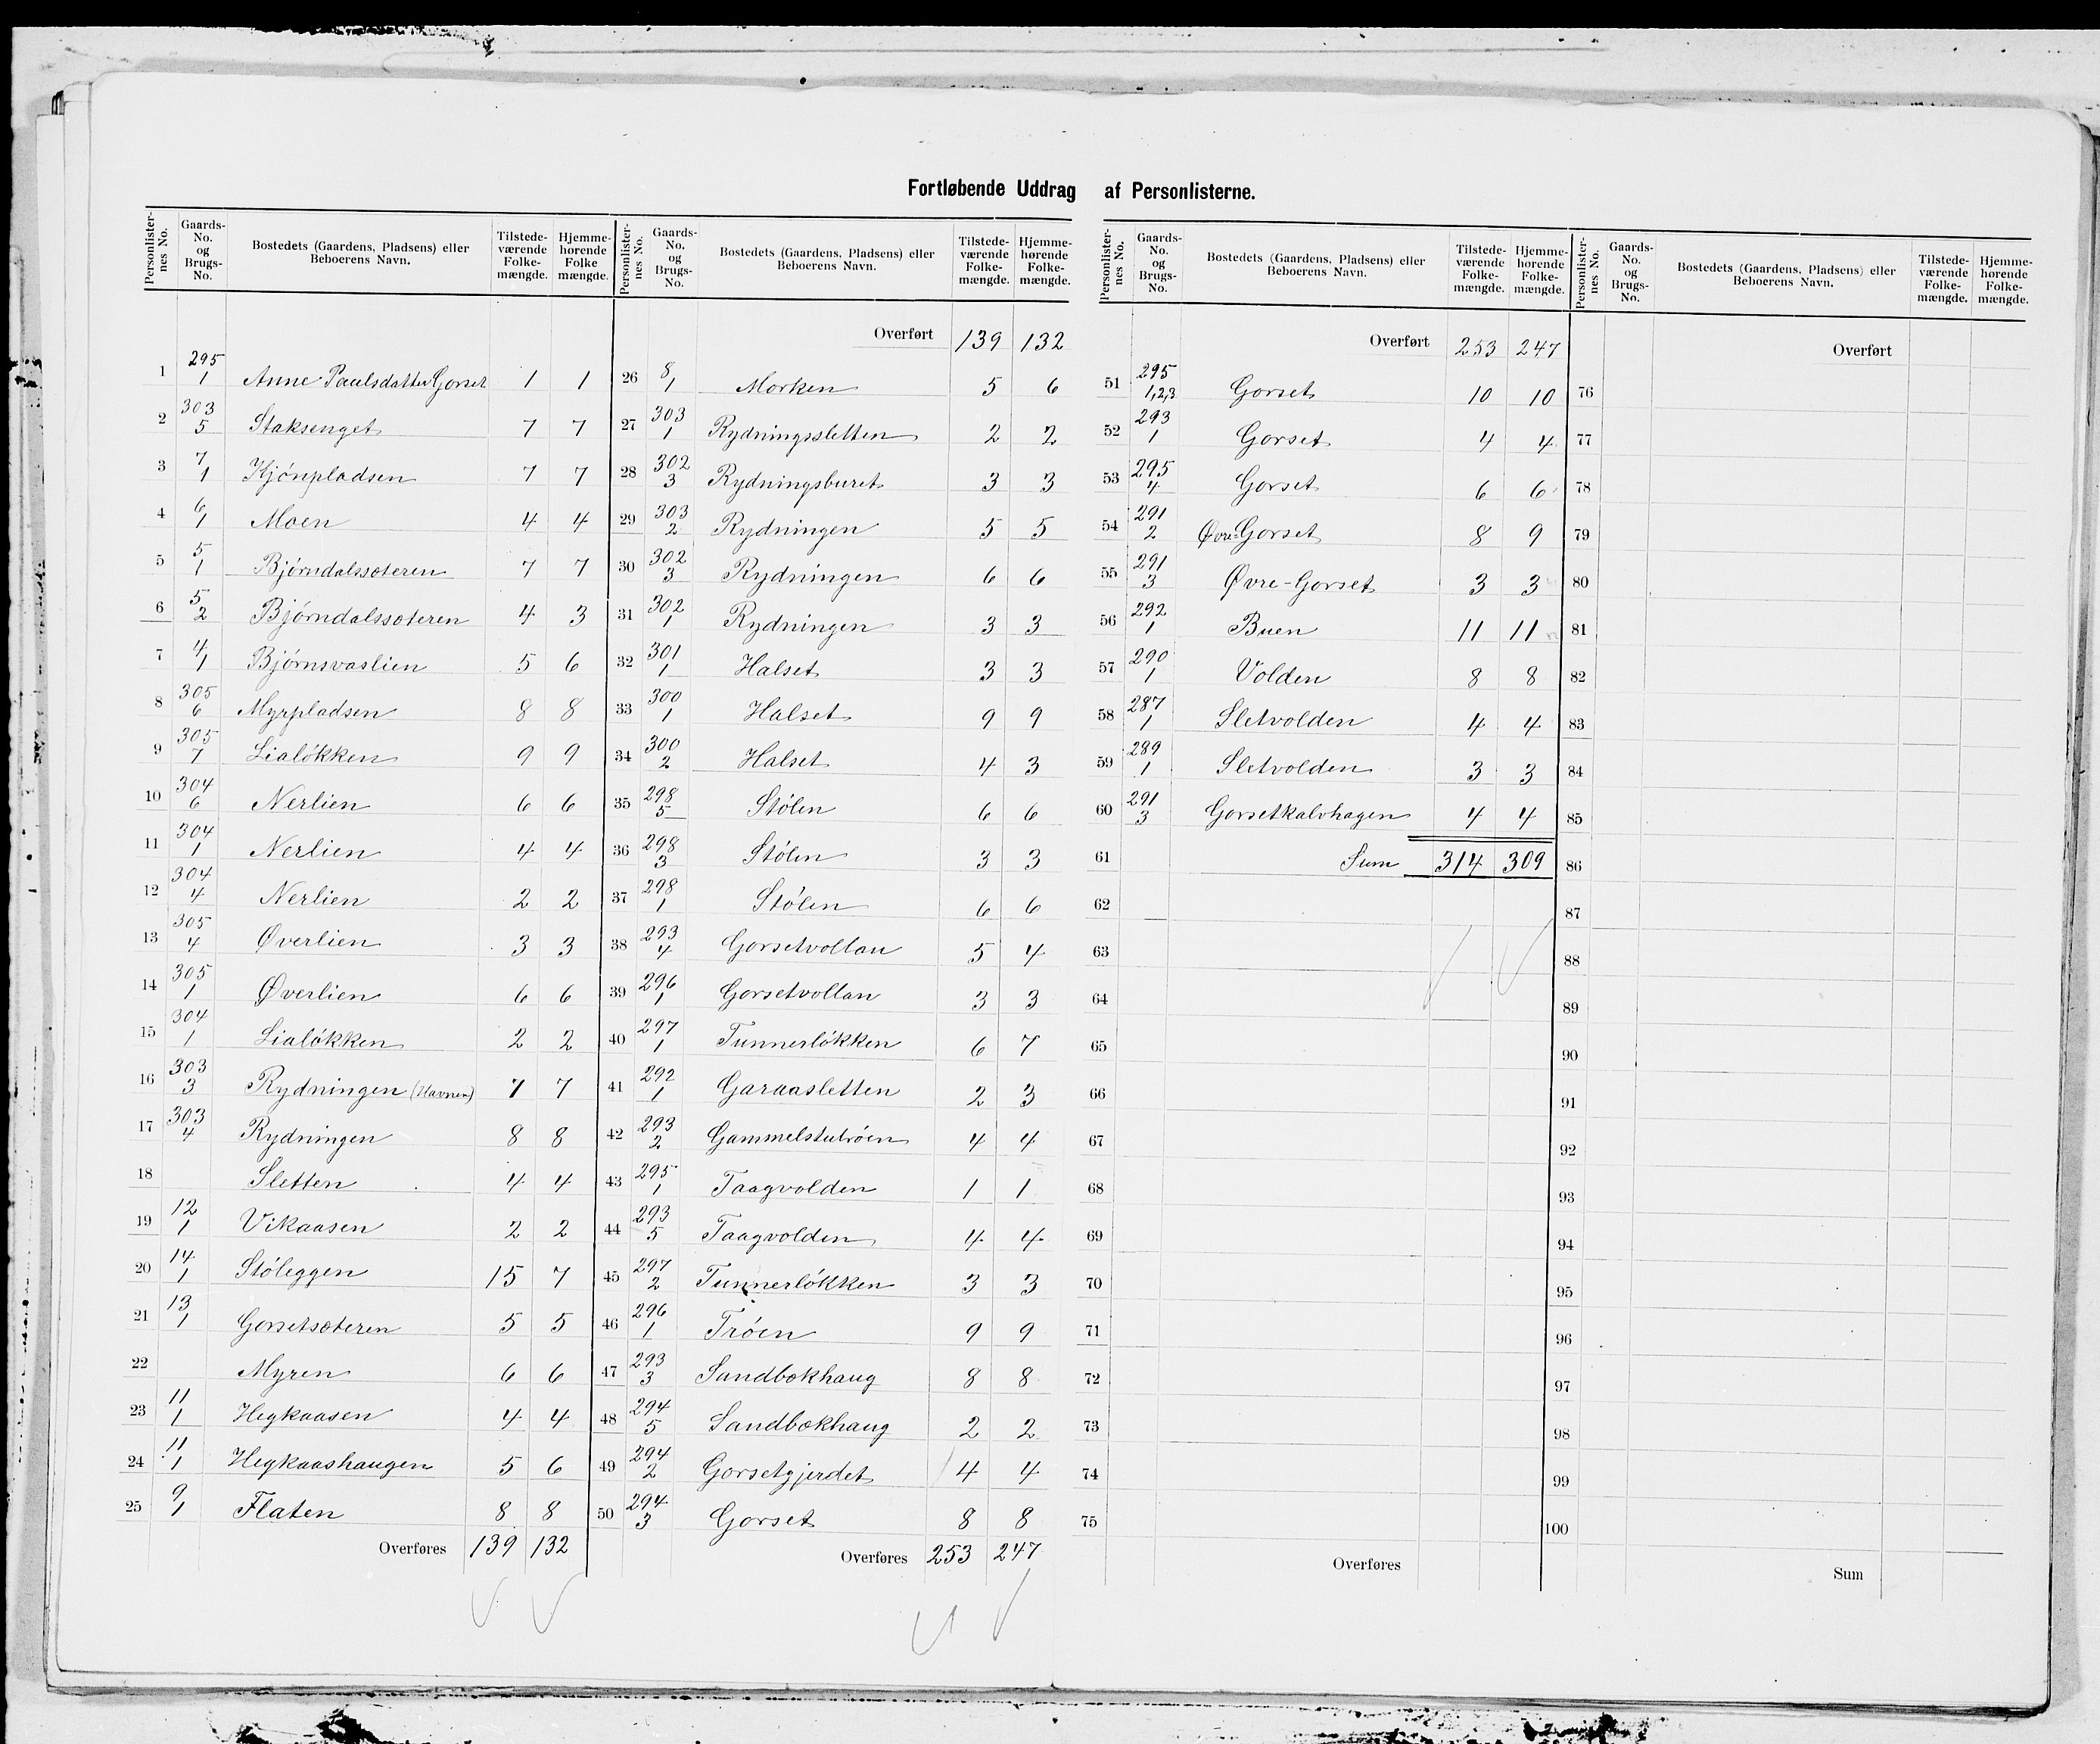 Fortløbende Uddrag af Personlisterne.
Personlister-nes No. Gaards-No. og Brugs-No. Bostedets (Gaardens, Pladsens) eller Beboerens Navn. Tilstede-værende Folke-mængde. Hjemme-hørende Folke mængde.
1 295/1 Anne Paulsdatter Gorset 1 1
2 303/5 Staksenget 7 7
3 7/1 Hjönpladsen 7 7
4 6/1 Moen 4 4
5 5/1 Björndalssæteren 7 7
6 5/2 Björndalssæteren 4 3
7 4/1 Bjørnsvaslien 5 6
8 305/6 Myrpladsen 8 8
9 305/7 Lialökken 9 9
10 304/6 Nerlien 6 6
11 304/1 Nerlien 4 4
12 304/4 Nerlien 2 2
13 305/4 Øverlien 3 3
14 305/1 Øverlien 6 6
15 304/1 Lialökken 2 2
16 303/3 Rydningen (Havnen) 7 7
17 303/4 Rydningen 8 8
18 Sletten 4 4
19 12/1 Vikaasen 2 2
20 14/1 Støleggen 15 7
21 13/1 Gorsetsæteren 5 5
22 Myren 6 6
23 11/1 Hegkaasen 4 4
24 11/1 Hegkaashaugen 5 6
25 9/1 Flaten 8 8
Overføres 139 132
Personlister-nes No. Gaards-No. og Brugs-No. Bostedets (Gaardens, Pladsens) eller Beboerens Navn. Tilstede-værende Folke-mængde. Hjemme-hørende Folke-mængde.
Overført 139 132
26 8/1 Morken 5 6
27 303/1 Rydningssletten 2 2
28 302/3 Rydningsburet 3 3
29 303/2 Rydningen 5 5
30 302/3 Rydningen 6 6
31 302/1 Rydningen 3 3
32 301/1 Halset 3 3
33 300/1 Halset 9 9
34 300/2 Halset 4 3
35 298/5 Stølen 6 6
36 298/3 Stølen 3 3
37 298/1 Stølen 6 6
38 293/4 Gorsetvollan 5 4
39 296/1 Gorsetvollan 3 3
40 297/1 Tunnerlökken 6 7
41 292/1 Garaasletten 2 3
42 293/2 Gammelstutröen 4 4
43 295/1 Taagvolden 1 1
44 293/5 Taagvolden 4 4
45 297/2 Tunnerlökken 3 3
46 296/1 Tröen 9 9
47 293/3 Sandbækhaug 8 8
48 294/5 Sandbækhaug 2 2
49 294/2 Gorsetgjerdet 4 4
50 294/3 Gorset 8 8
Overføres 253 247
Personlister-nes No. Gaards-No. og Brugs-No. Bostedets (Gaardens, Pladsens) eller Beboerens Navn. Tilstede-værende Folke-mængde. Hjemme-hørende Folke-mængde.
Overført 253 247
51 295/1,2,3 Gorset 10 10
52 293/1 Gorset 4 4
53 295/4 Gorset 6 6
54 291/2 Øvre-Gorset 8 9
55 291/3 Øvre-Gorset 3 3
56 292/1 Buen 11 11
57 290/1 Volden 8 8
58 287/1 Sletvolden 4 4
59 289/1 Sletvolden 3 3
60 291/3 Gorsetkalvhagen 4 4
61 Sum 314 309
62
63
64
65
66
67
68
69
70
71
72
73
74
75
Overføres
Personlister-nes No. Gaards-No. og Brugs-No. Bostedets (Gaardens, Pladsens) eller Beboerens Navn. Tilstede-værende Folke-mængde. Hjemme-hørende Folke-mængde.
Overført
76
77
78
79
80
81
82
83
84
85
86
87
88
89
90
91
92
93
94
95
96
97
98
99
100
Sum